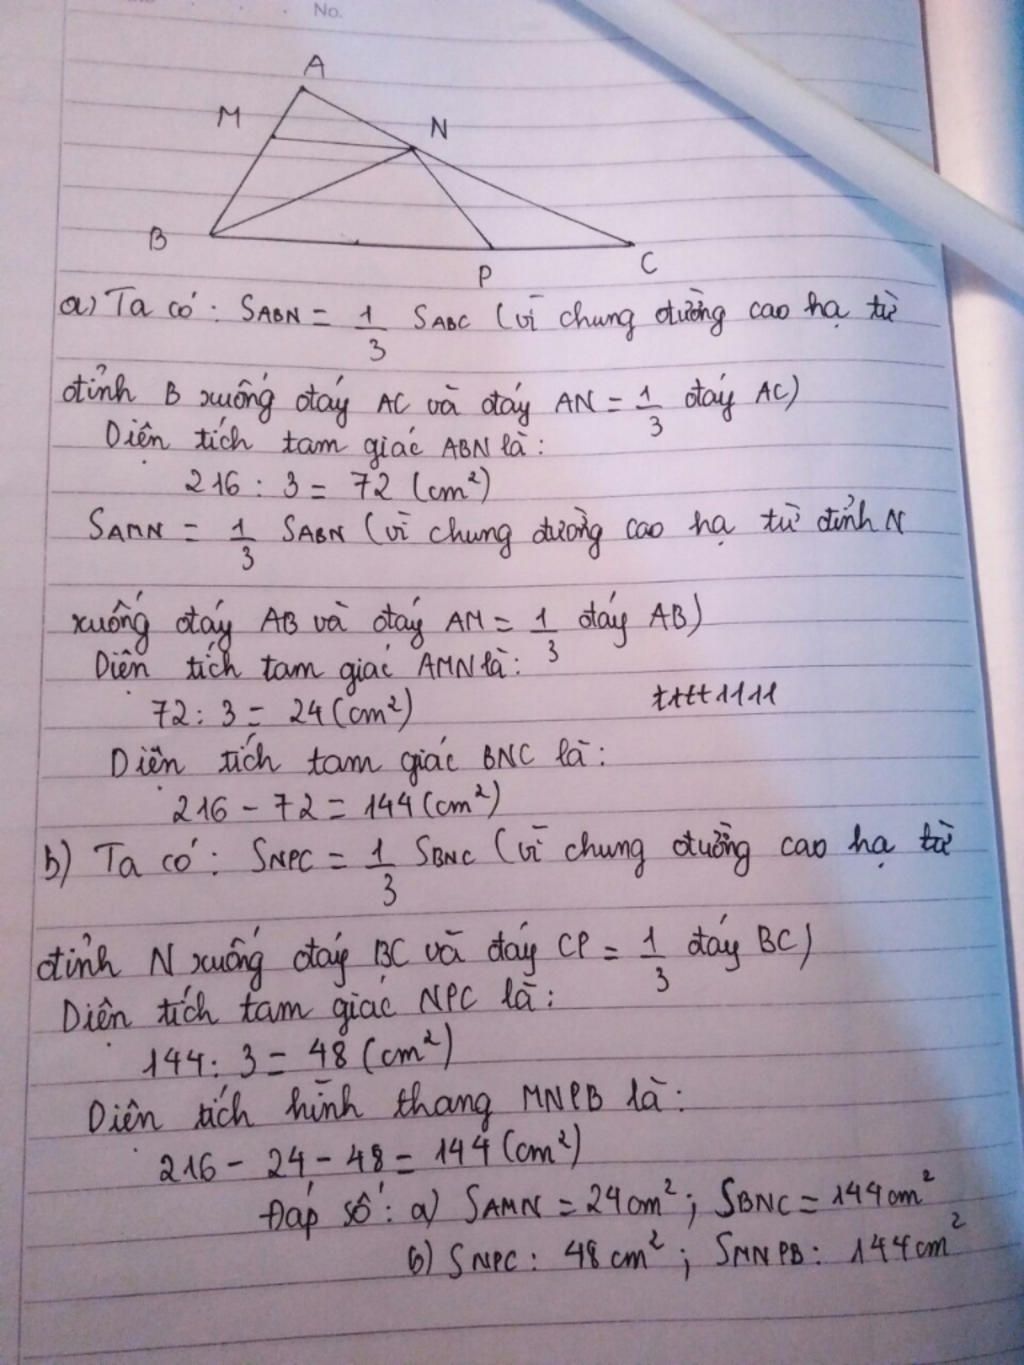 No.
A
M
N
B
P
C
a) Ta có: SABN = 1/3 SABC (vì chung đường cao hạ từ
đỉnh B xuống đáy AC và đáy AN = 1/3 đáy AC)
Diện tích tam giác ABN là:
216 : 3 = 72 (cm²)
SAMN = 1/3 SABN (vì chung đường cao hạ từ đỉnh N
xuống đáy AB và đáy AM = 1/3 đáy AB)
Diện tích tam giác AMN là:
72 : 3 = 24 (cm²)
Diện tích tam giác BNC là:
216 - 72 = 144 (cm²)
b) Ta có: SNPC = 1/3 SBNC (vì chung đường cao hạ từ
đỉnh N xuống đáy BC và đáy CP = 1/3 đáy BC)
Diện tích tam giác NPC là:
144 : 3 = 48 (cm²)
Diện tích hình thang MNPB là:
216 - 24 - 48 = 144 (cm²)
Đáp số: a) SAMN = 24cm²; SBNC = 144cm²
b) SNPC: 48cm²; SMNPB: 144cm²